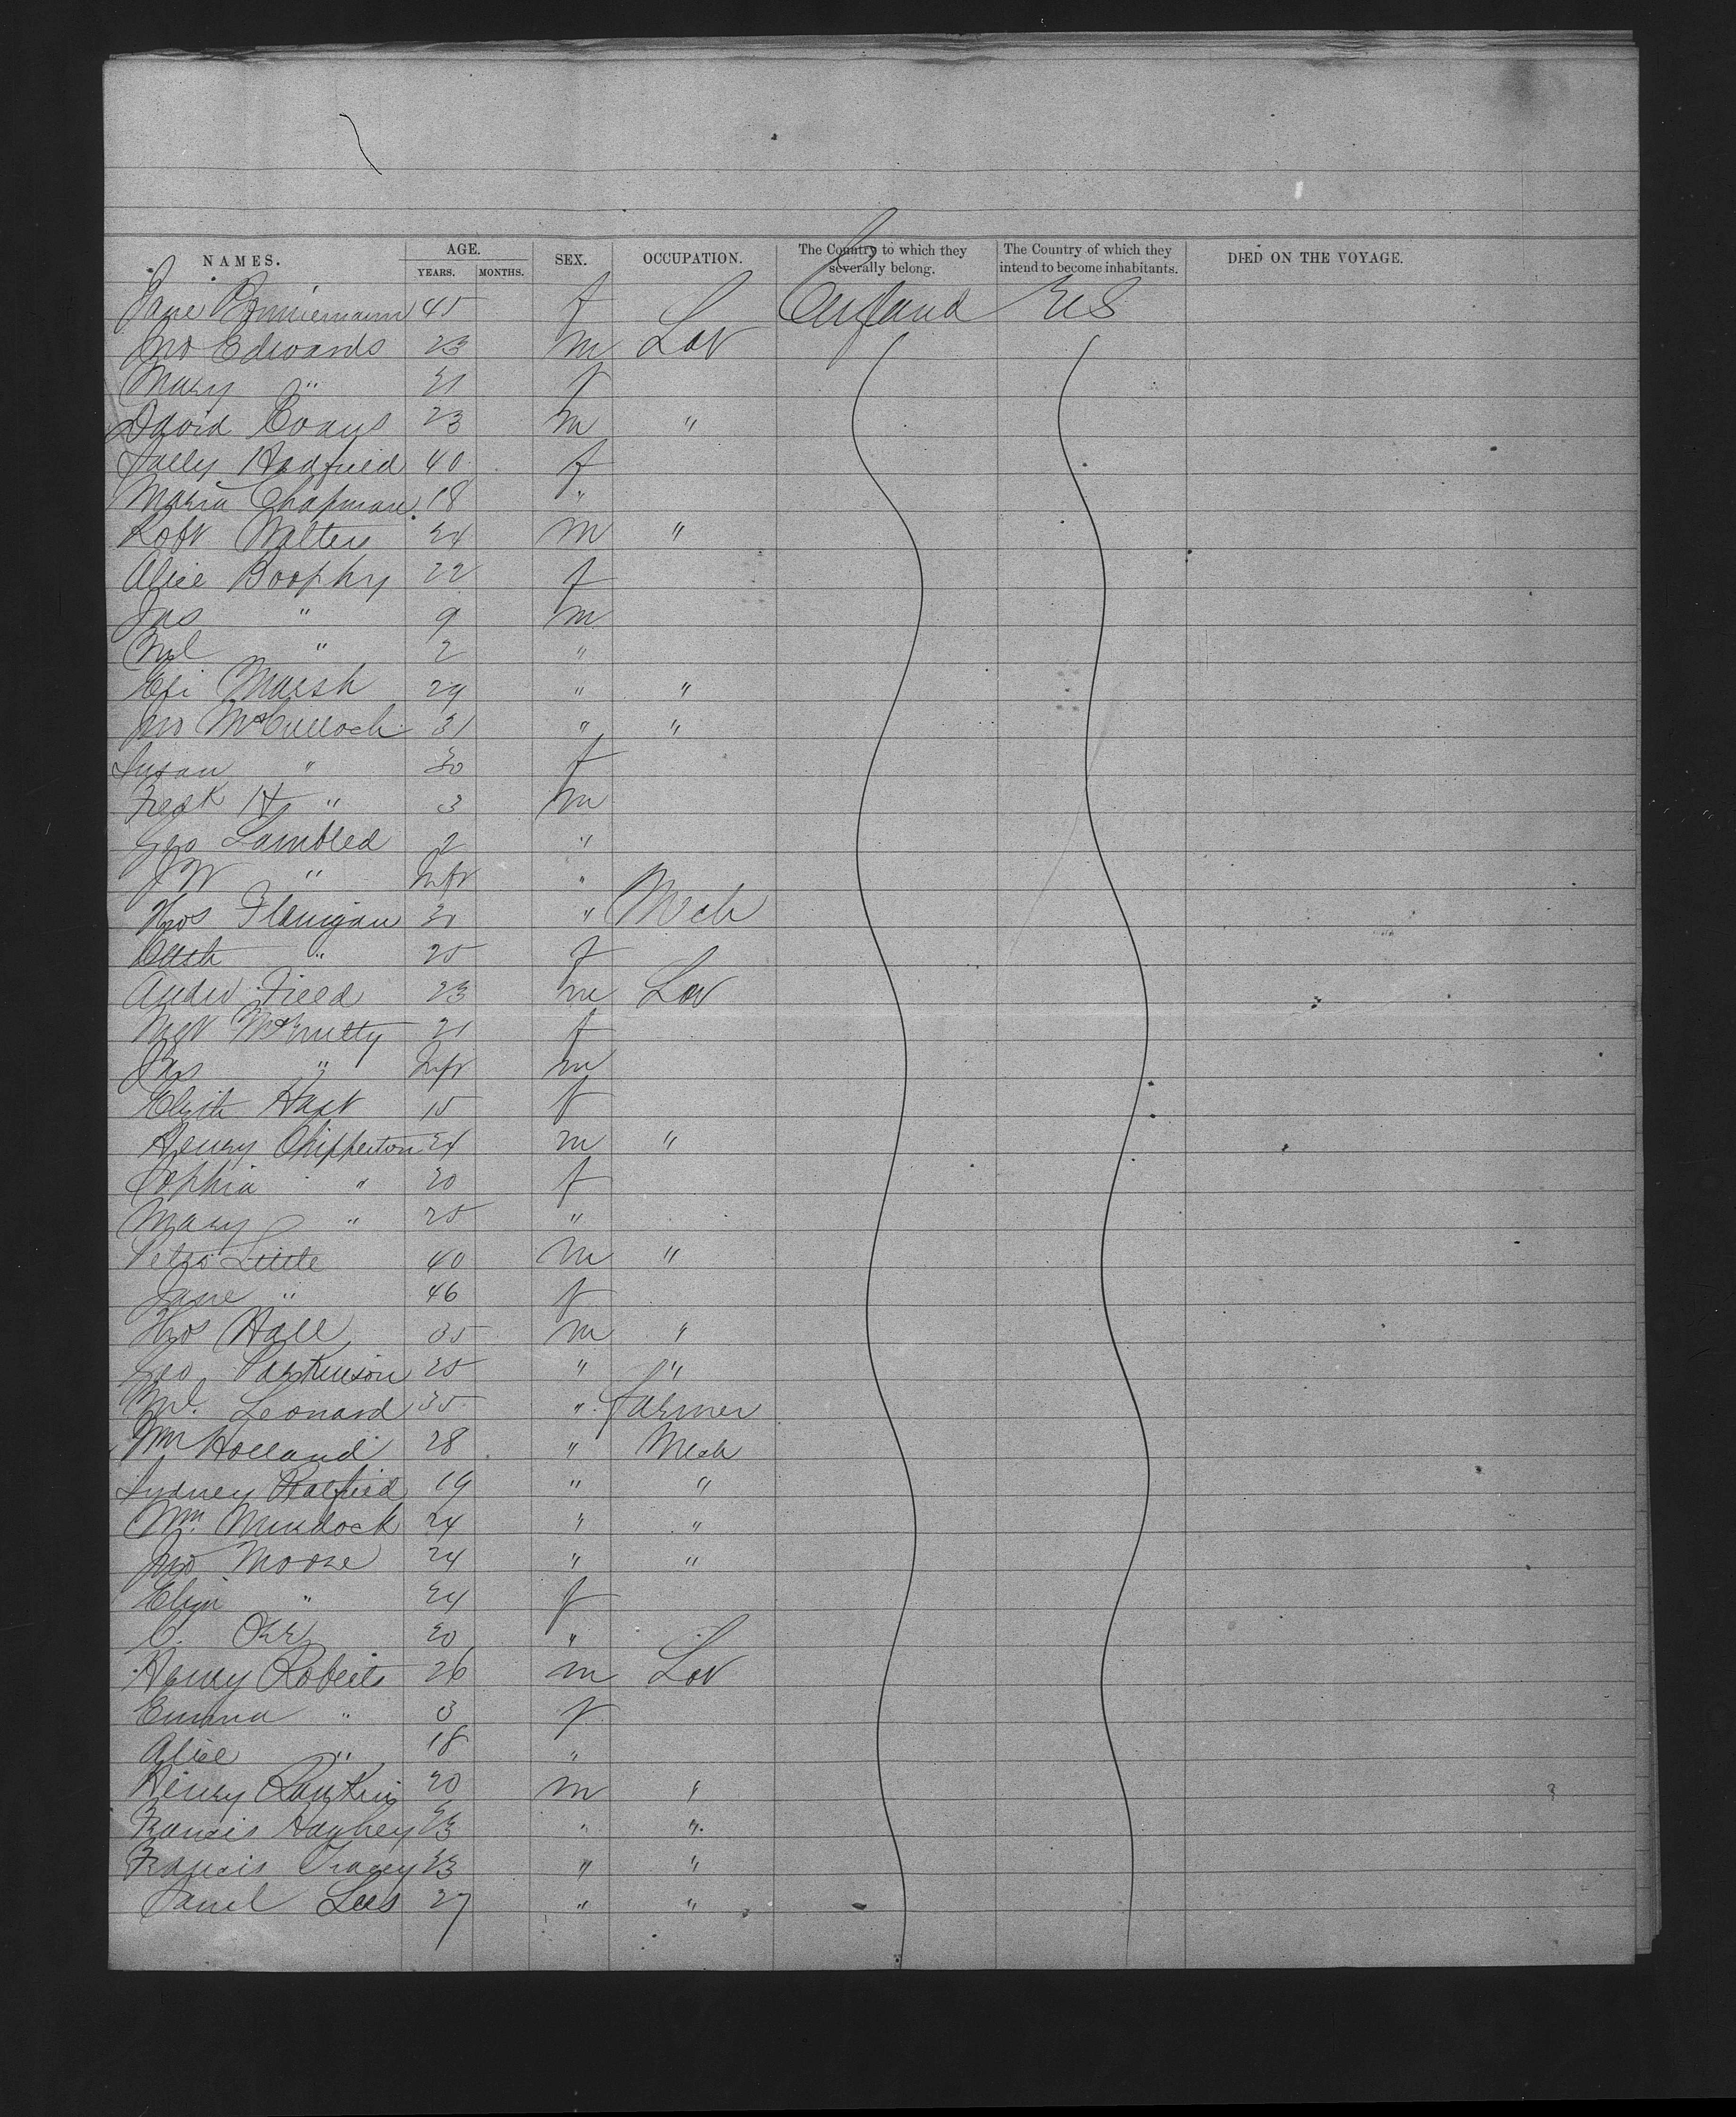 NAMES. AGE. YEARS. MONTHS. SEX. OCCUPATION. The Country to which they severally belong. The Country of which they intend to become inhabitants. DIED ON THE VOYAGE.
Jane 45 f England U S
Jno Edwards 23 m Lab
Mary " 21 f
David Evans 23 m "
Sally Hadfield 40 f
Maria Chapman 18 "
Robt Walters 24 m "
Alice Boophy 22 f
Jas " 9 m
Ml " 2 "
Eli Marsh 24 " "
Jno McCulloch 31 " "
Susan " 30 f
Fredk H " 3 m
Geo Lambled 2 "
J W " Inft "
Thos Flanigan 30 " Mech
Cath " 25 f
Andw Field 23 m Lab
Mgt 21 f
Jas " Inft m
Elizth Hart 15 f
Henry Chipperton 24 m "
Sophia " 20 f
Mary " 25 "
Peter Little 40 m "
Jane " 46 f
Thos Hall 35 m "
Geo Parkinson 25 " "
Ml. Leonard 35 " farmer
Wm Holland 28 " Mech
Sydney Hatfield 19 " "
Wm. Murdock 24 " "
Jno Moore 24 " "
Eliza " 24 f
C. Orr 20 "
Henry Roberts 26 m Lab
Emma " 3 f
Alice " 18 "
Henry Rankin 20 m "
Francis Haghey 23 " "
Francis Tracey 23 " "
Saml Lees 27 " "